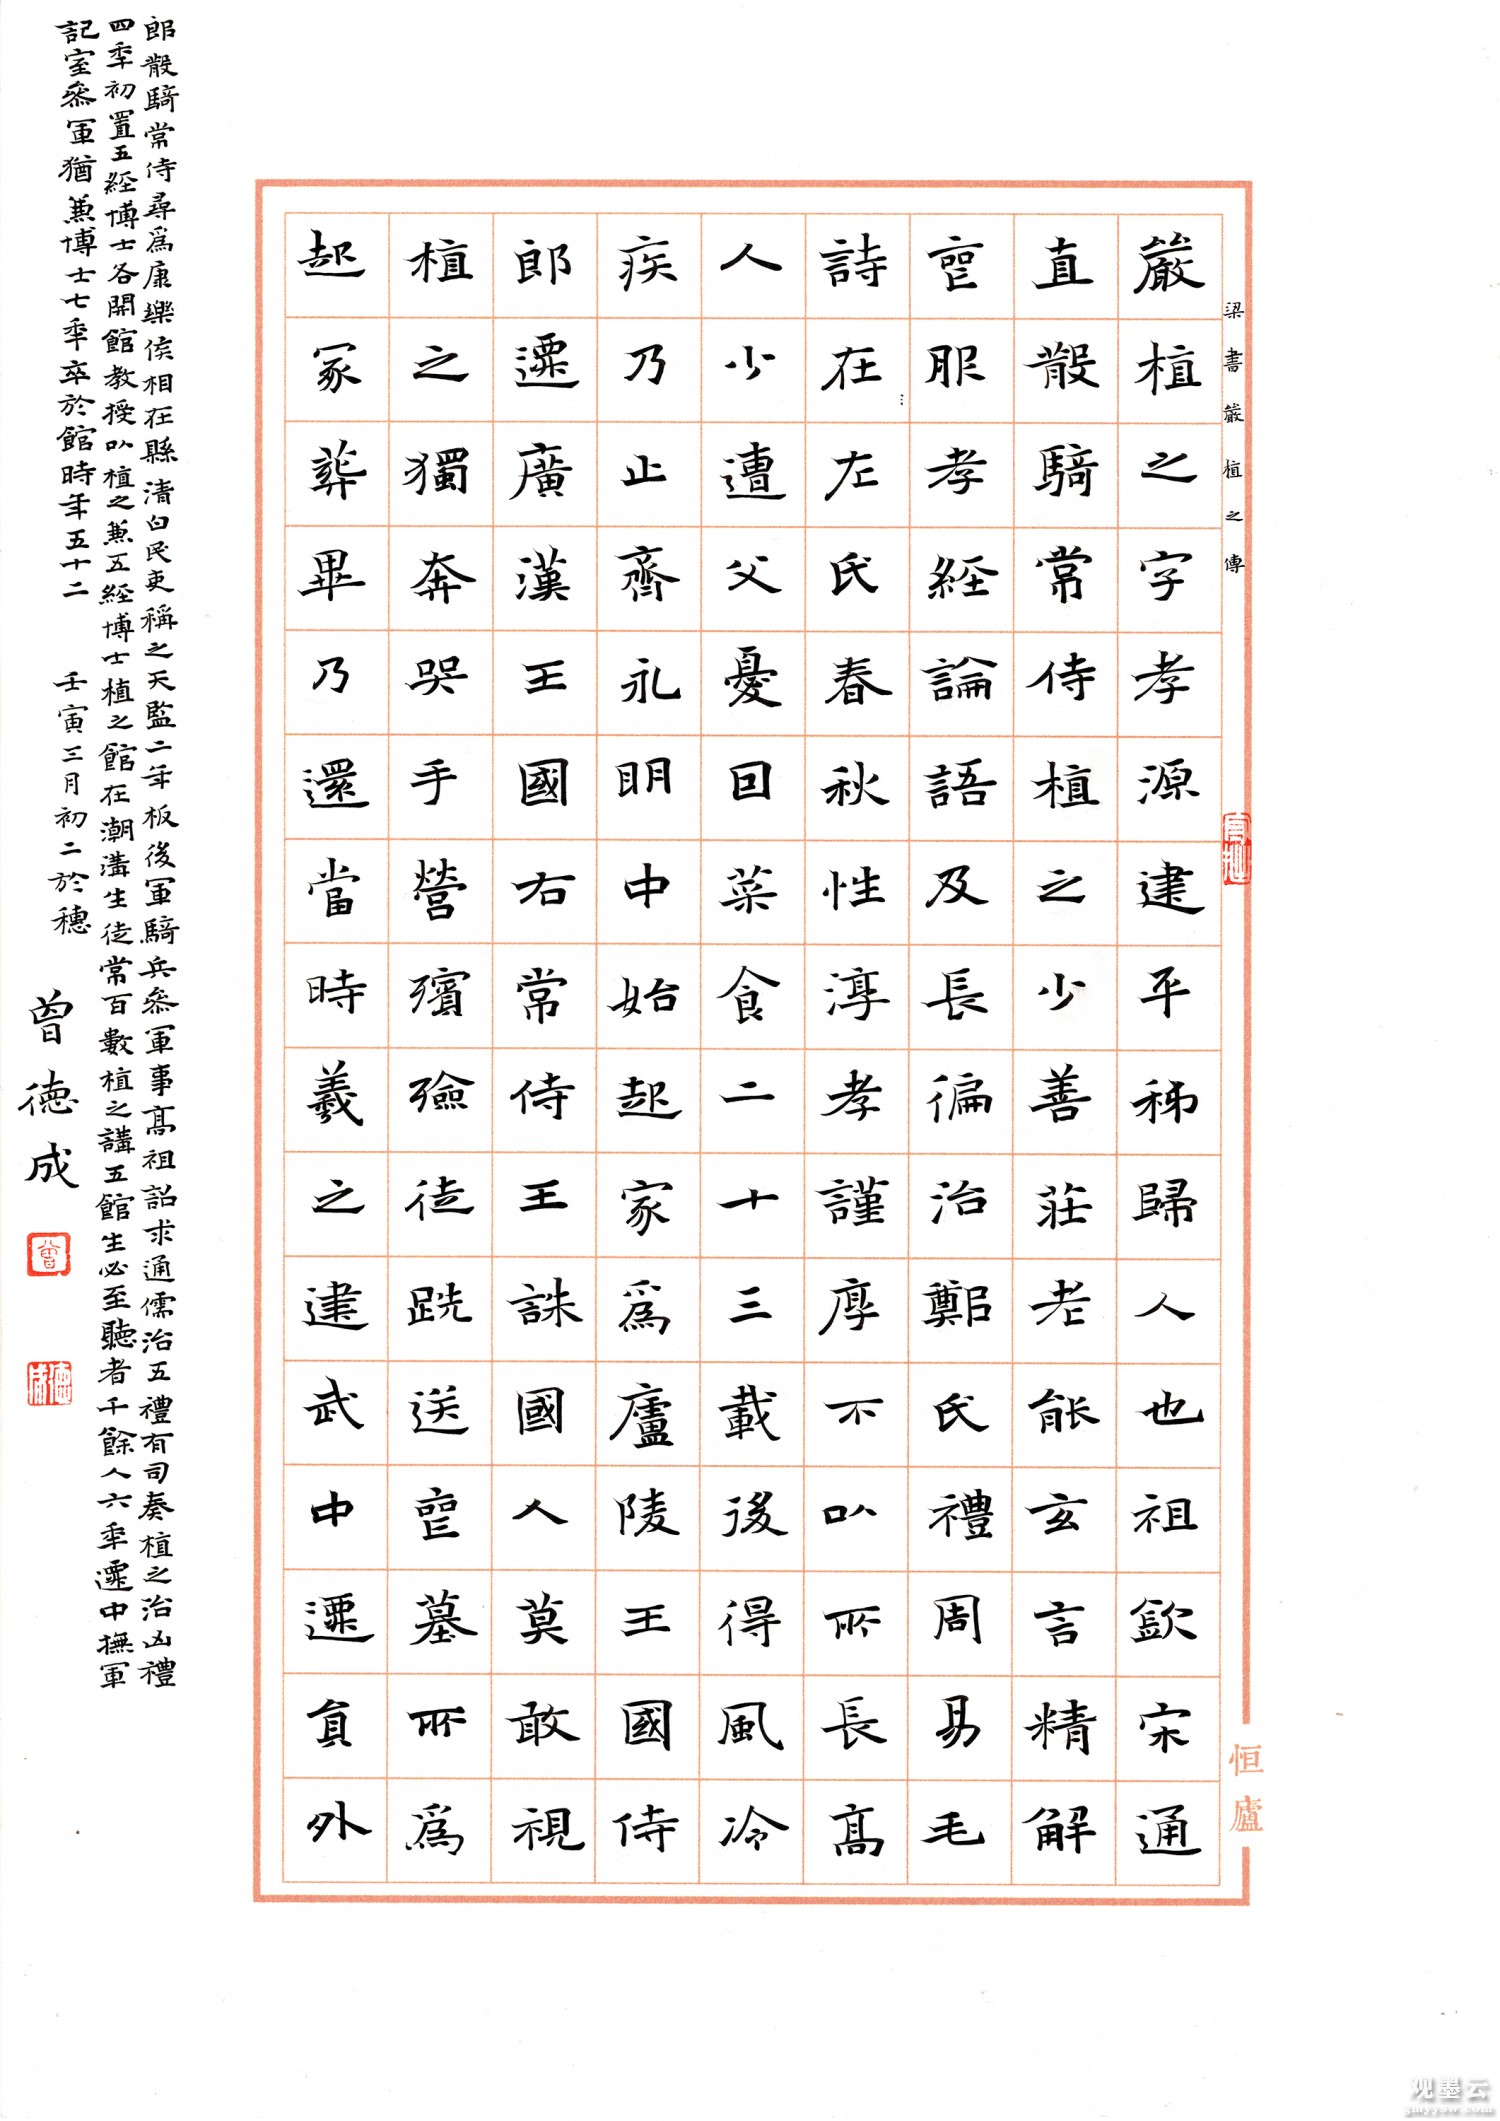 梁書嚴植之傳
嚴植之字孝源建平秭歸人也祖歆宋通
直散騎常侍植之少善莊老能玄言精解
喪服孝經論語及長徧治鄭氏禮周易毛
詩在左氏春秋性淳孝謹厚不以所長高
人少遭父憂因菜食二十三載後得風冷
疾乃止齊永明中始起家為廬陵王國侍
郎遷廣漢王國右常侍王誅國人莫敢視
植之獨奔哭手營殯殮徒跣送喪墓所為
起冢葬畢乃還當時義之建武中遷員外
郎散騎常侍尋為康樂侯相在縣清白民吏稱之天監二年板後軍騎兵參軍事高祖詔求通儒治五禮有司奏植之治凶禮
四年初置五經博士各開館教授以植之兼五經博士植之館在潮溝生徒常百數植之講五館生必至聽者千餘人六年遷中撫軍
記室參軍猶兼博士七年卒於館時年五十二 壬寅三月初二於穗 曾德成
曾
德成
恒廬
观墨云
gmyyow.com